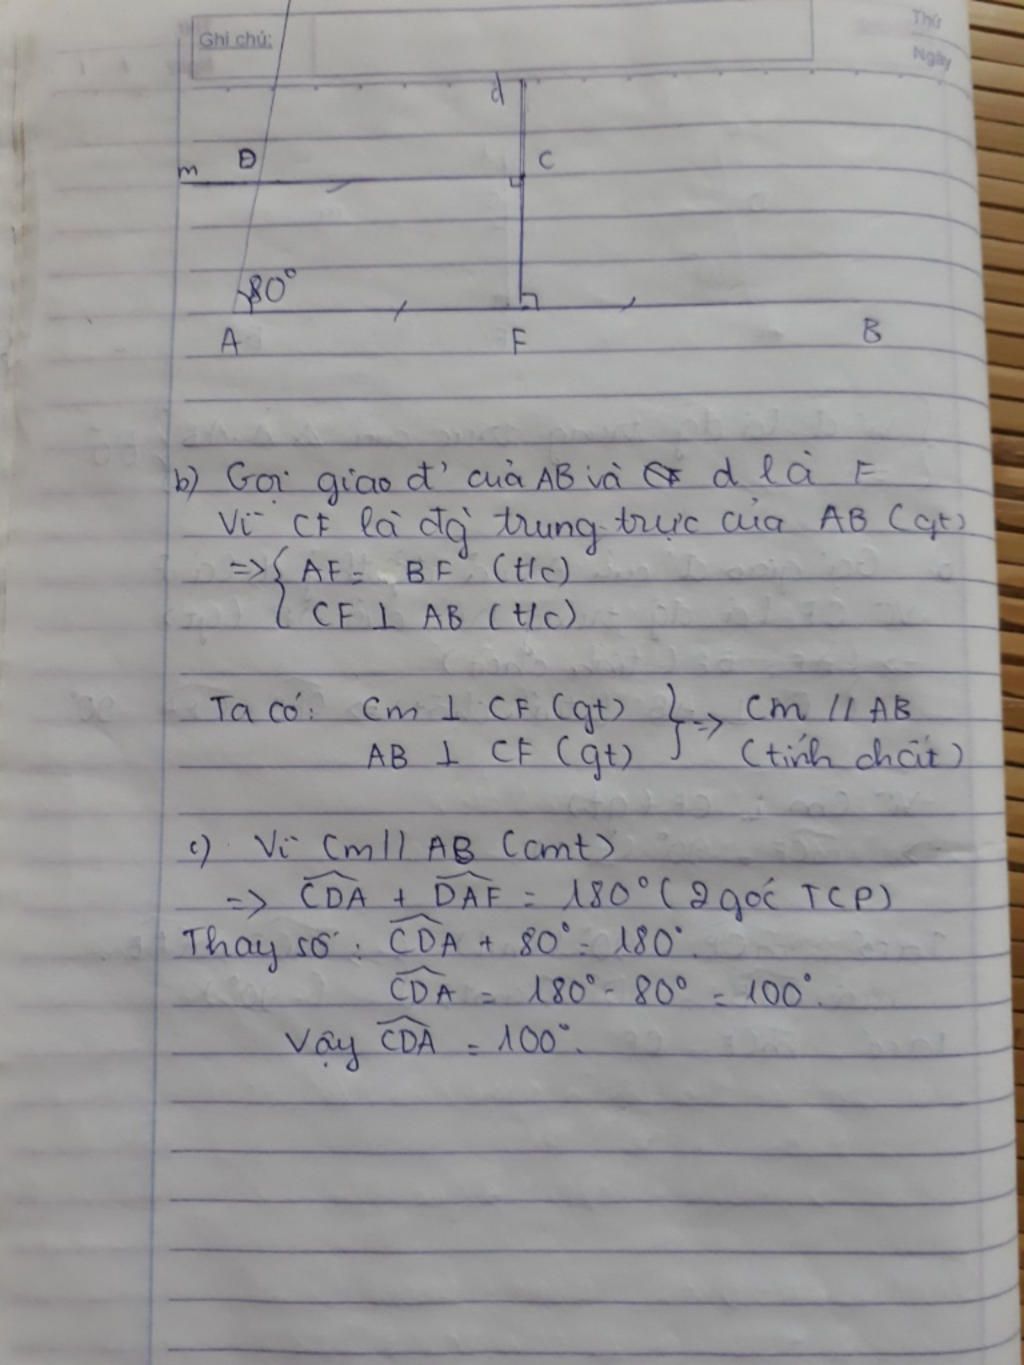 Ghi chú:
Thứ
Ngày
d
m D C
80°
A F B
b) Gọi giao đ' của AB và d là F
Vì CF là đg trung trực của AB (gt)
=> { AF = BF (t/c)
CF ⊥ AB (t/c)
Ta có: Cm ⊥ CF (gt) } => Cm // AB
AB ⊥ CF (gt) (tính chất)
c) Vì Cm // AB (cmt)
=> CDA + DAF = 180° (2 góc TCP)
Thay số: CDA + 80° = 180°.
CDA = 180° - 80° = 100°.
Vậy CDA = 100°.